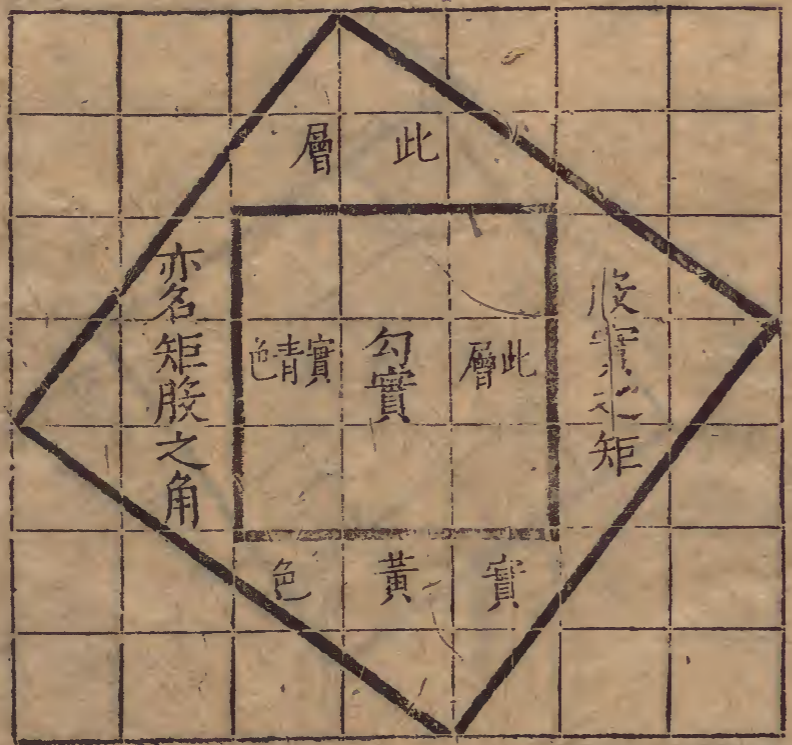 此層
股實之矩
此層
勾實
實青色
亦名矩股之角
實黃色